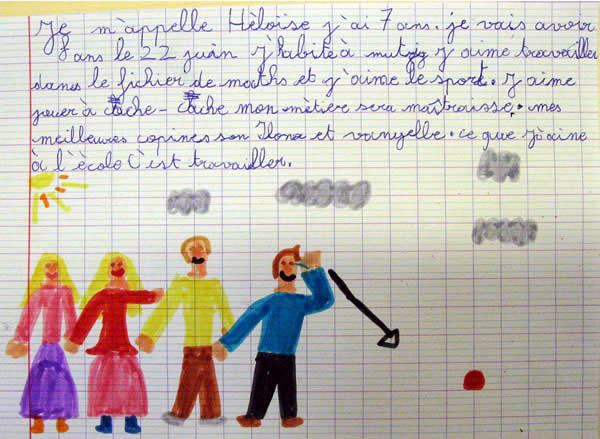 Je m'appelle Hèloïse j'ai 7 ans. je vais avoir
8 ans le 22 juin j'habite à mutzig j'aime travailler
dans le fichier de maths et j'aime le sport. J'aime
jouer à cache-cache mon mètier sera maîtraisse. mes
meilleures copines son Ilona et vangelle. ce que j'aime
à l'ècole c'est travailler.